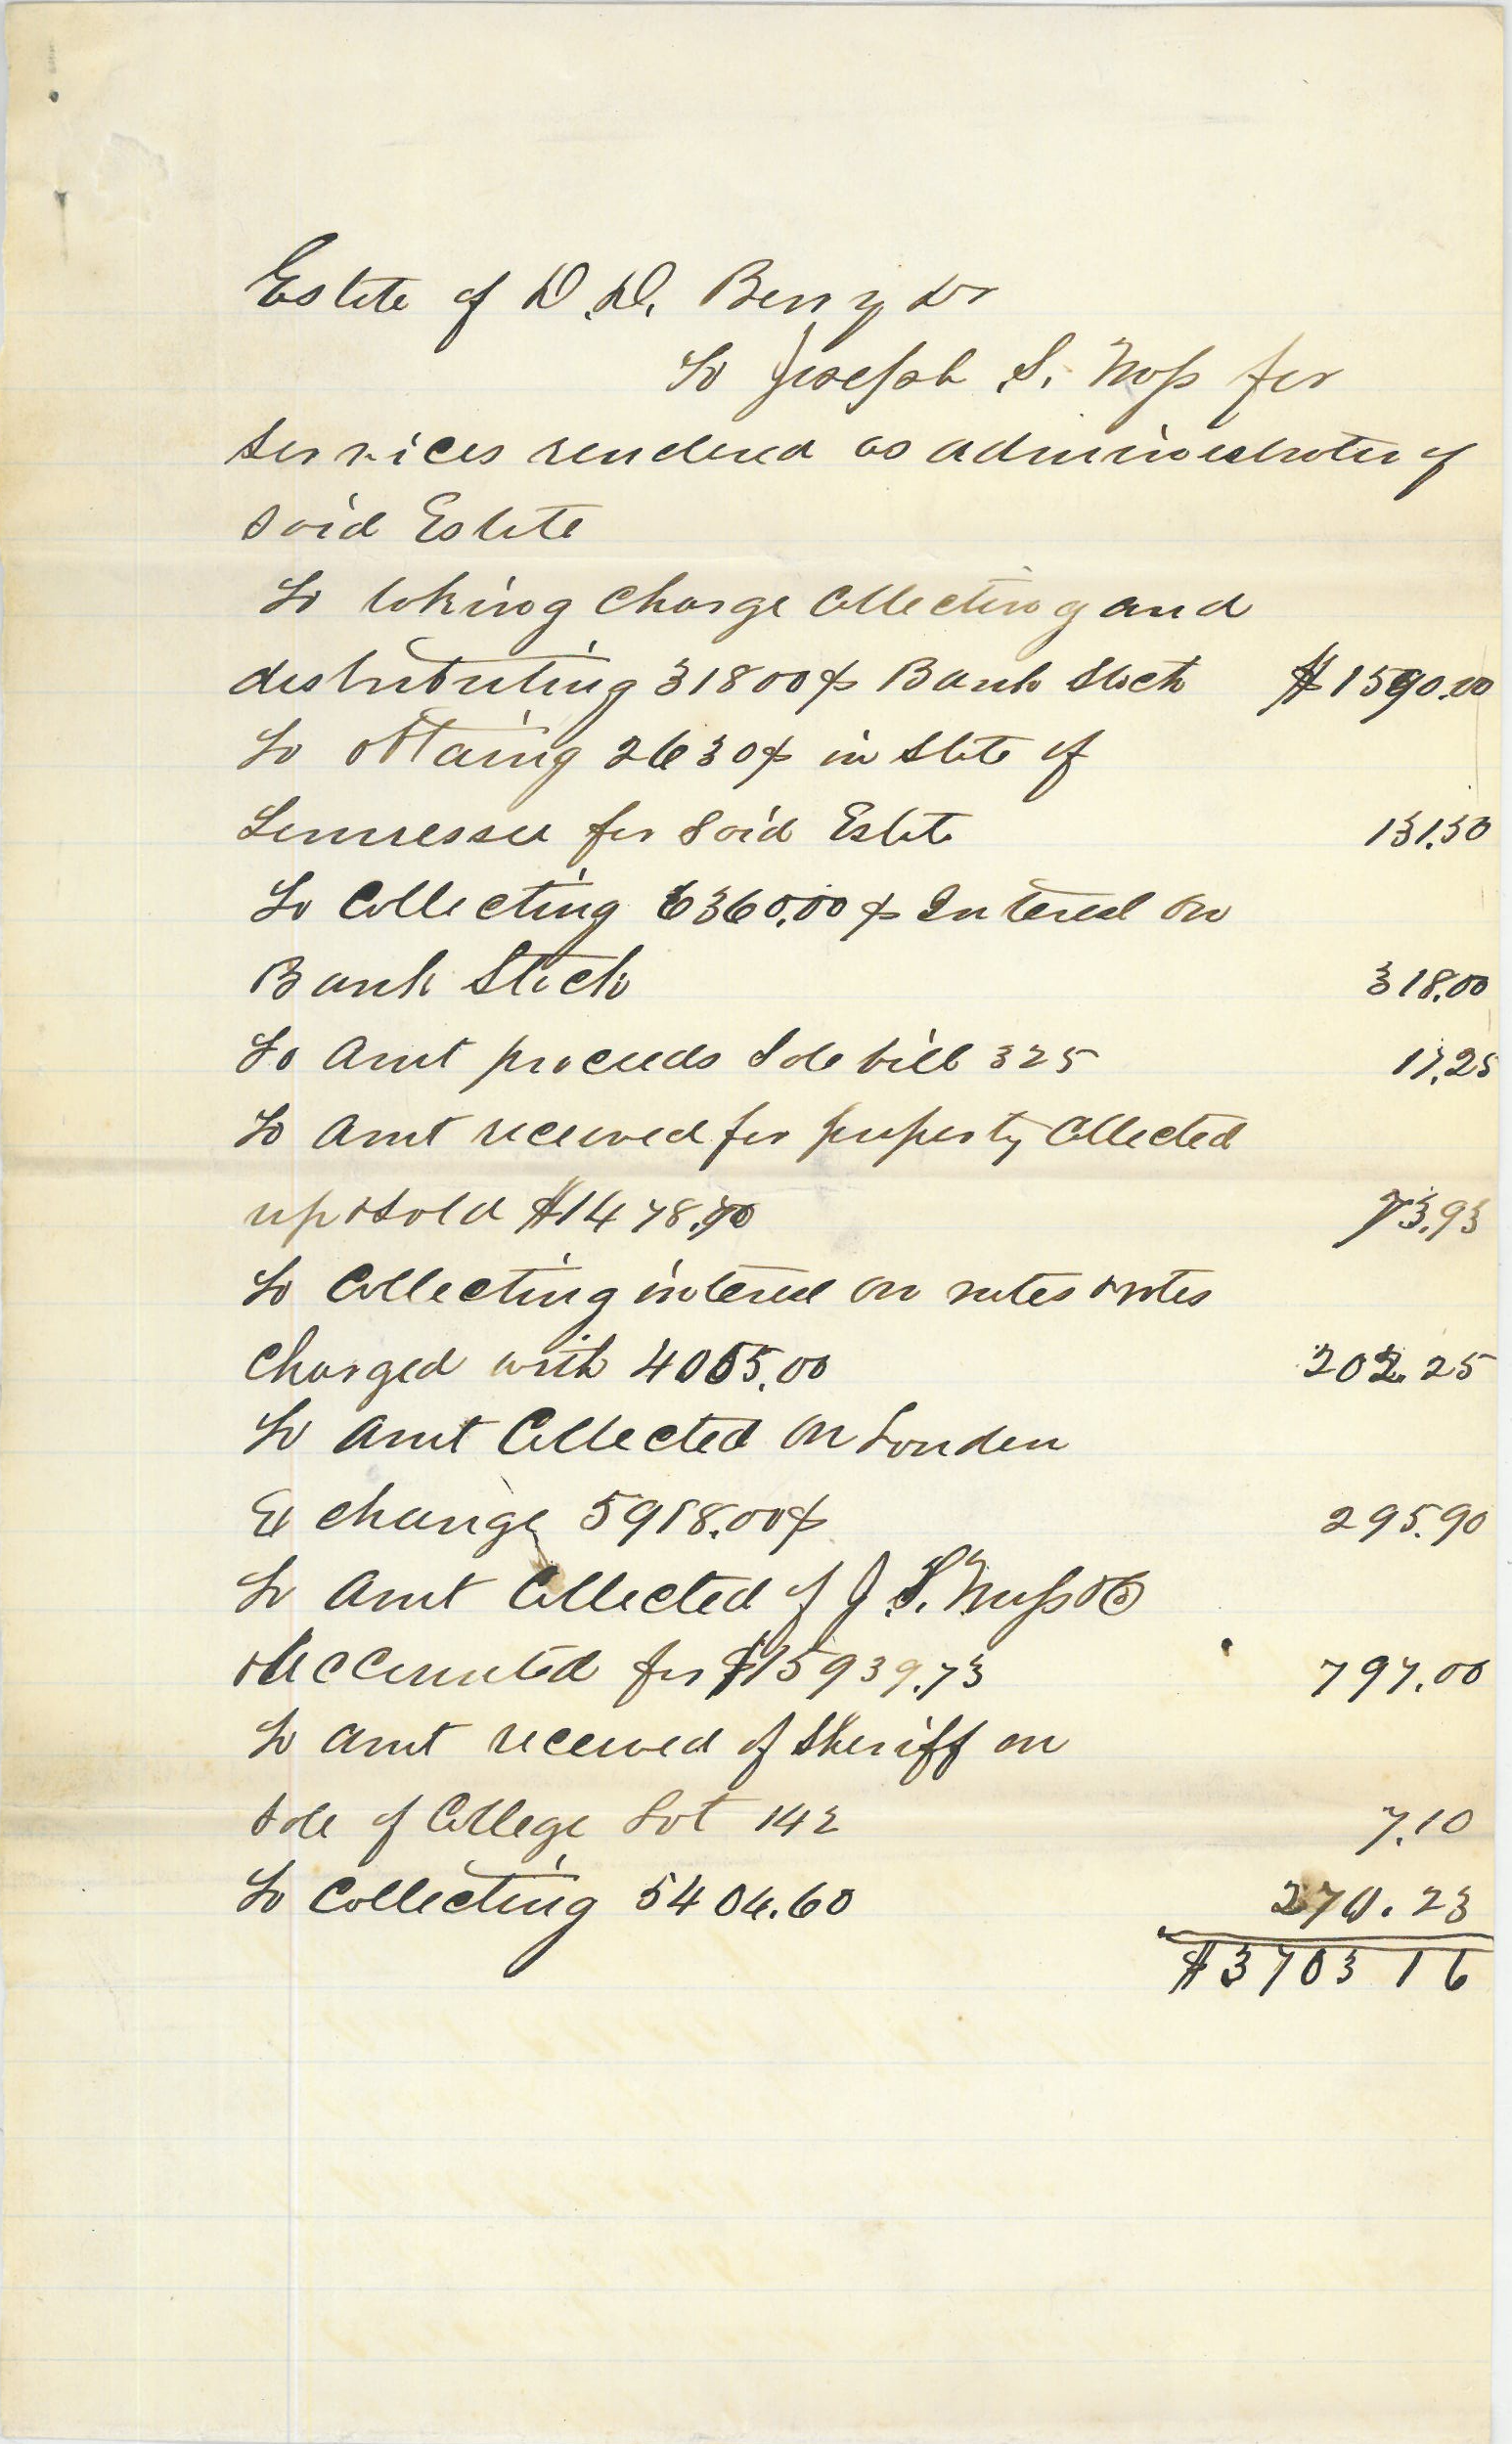 Estate of D. D. Berry Dr
To Joseph S. Moss for
services rendered as administrator of
said Estate
To taking Charge Collecting and
distributing 31800$ Bank Stock $1590.00
To obtaing 2630$ in State of
Tennessee for said Estate 131.50
To Collecting 6360.00$ Interest on
Bank Stock 318.00
To Amt proceeds Sale bill 325 17.25
To Amt received for property Collected
up & sold $1478.70 73.93
To Collecting interest on notes & notes
charged with 4055.00 202.25
To Amt Collected on London
Exchange 5918.00$ 295.90
To Amt Collected of J. S. Moss & Co
& Accounted for $15939.73 797.00
To Amt received of Sheriff on
Sale of College Lot 142 7.10
To Collecting 5404.60 270.23
$3703 16